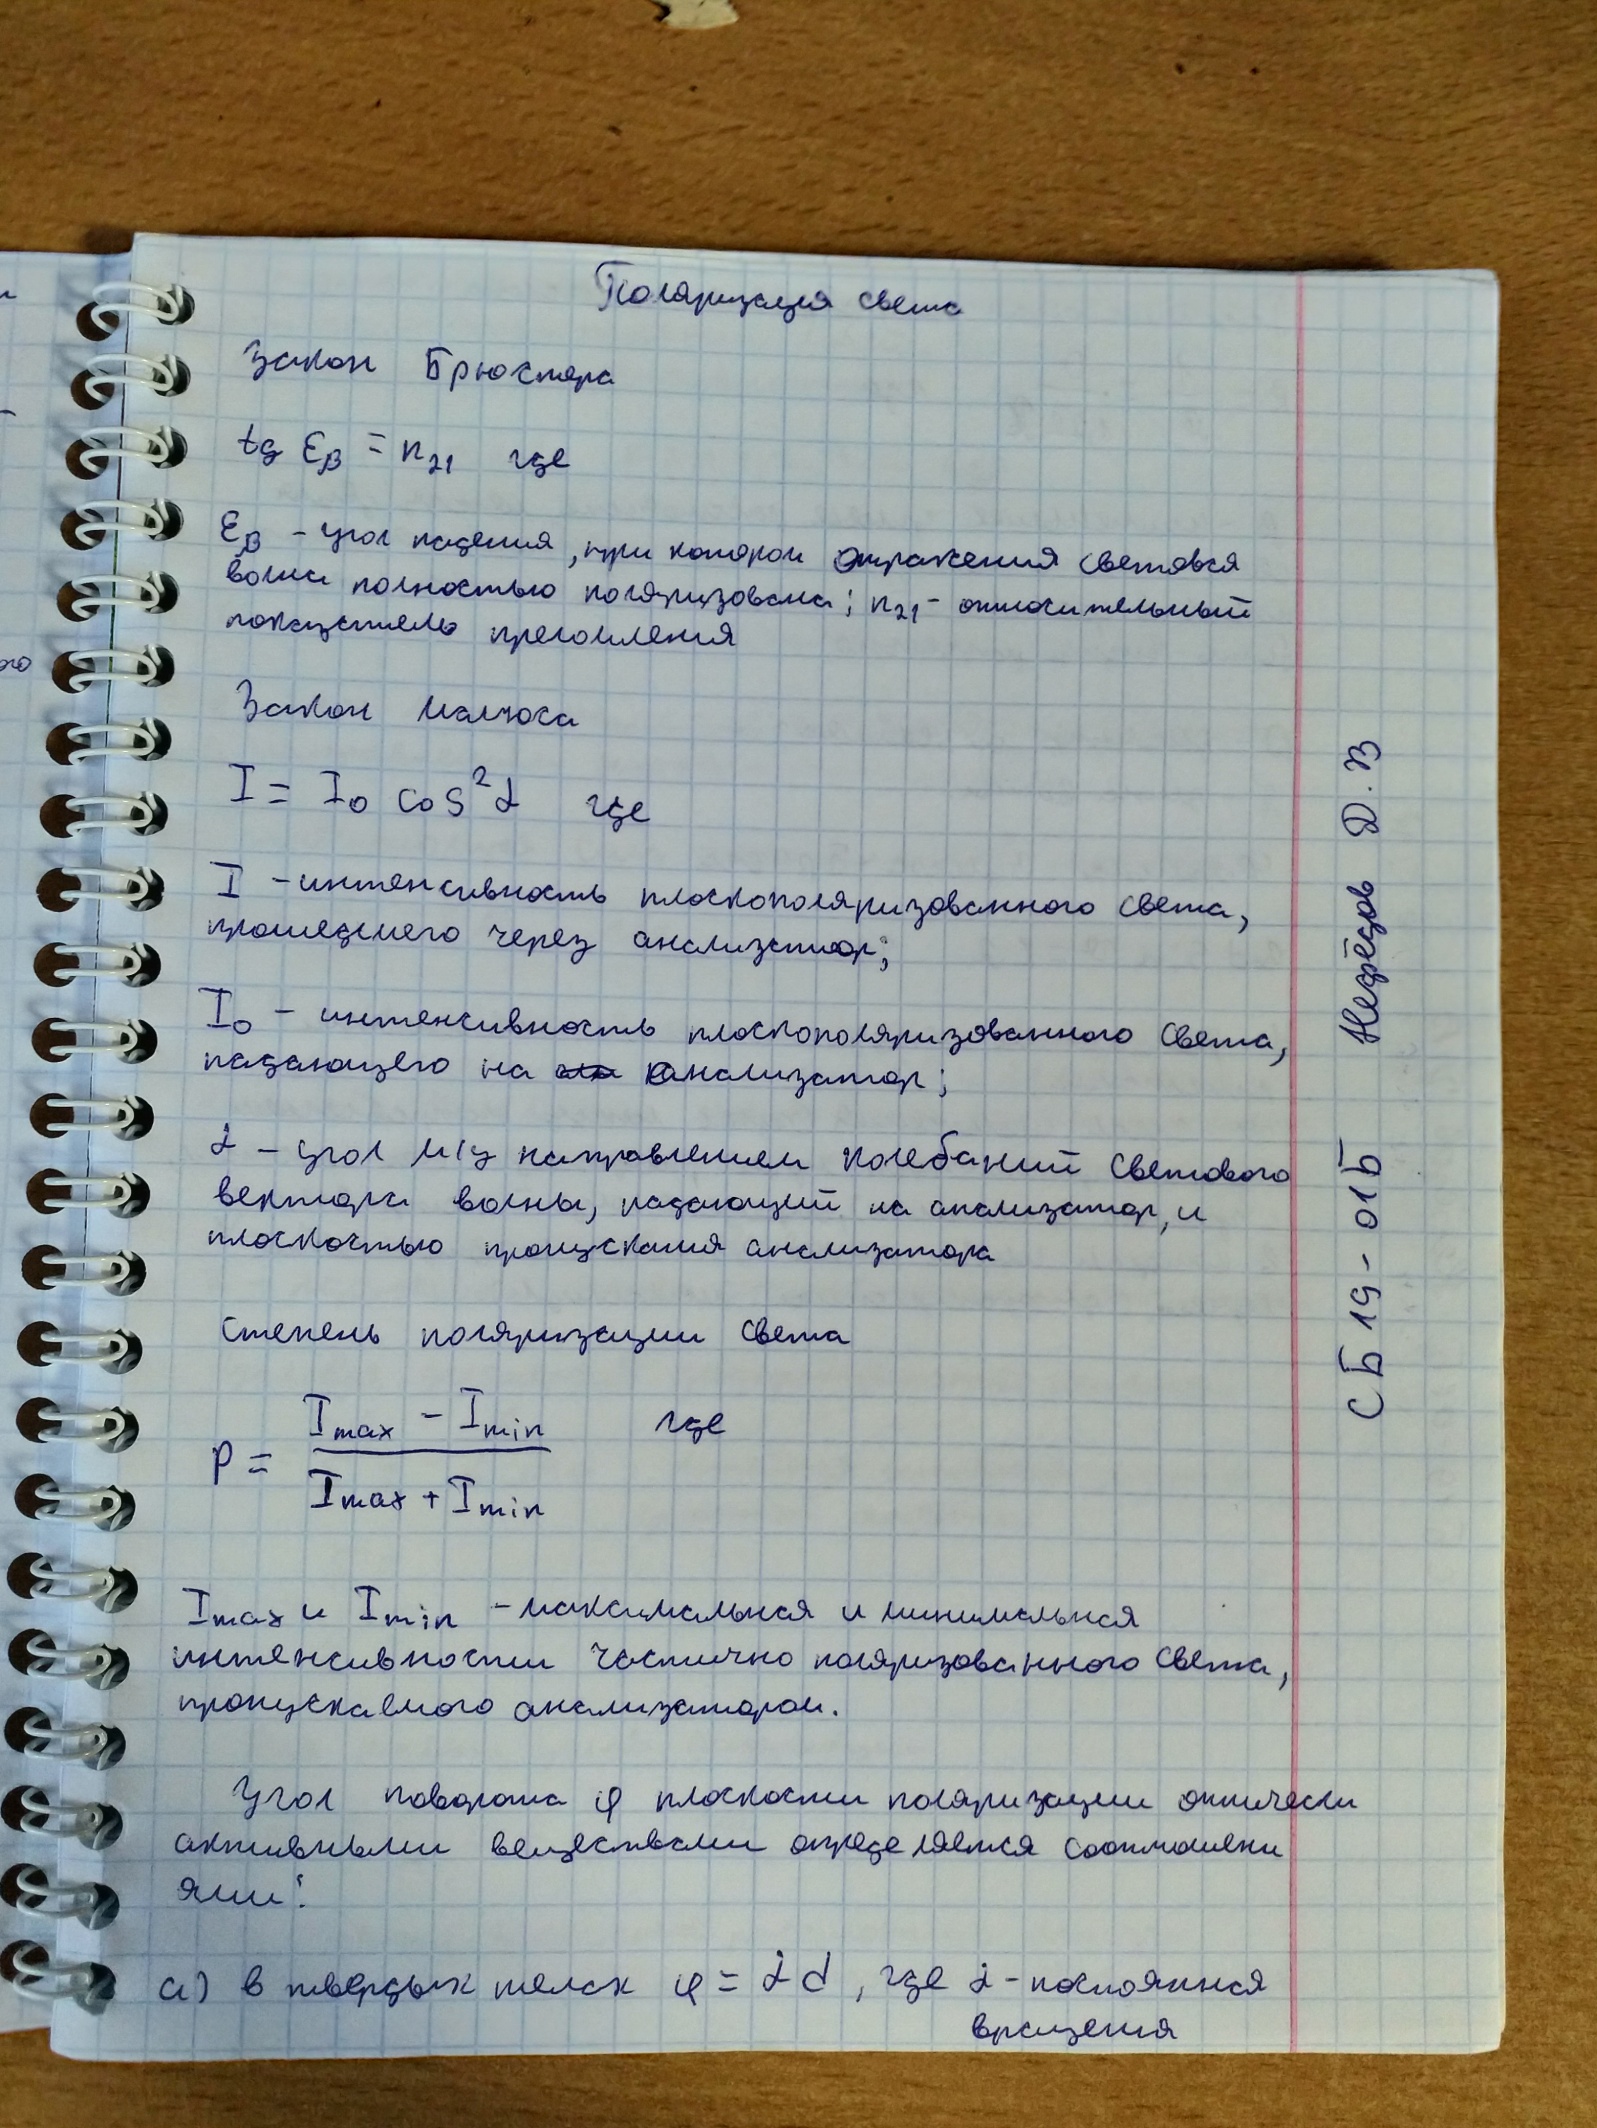 Поляризация света
Закон Брюстера
tg εβ = n21 где
εβ - угол падения, при котором отражения световая
волна полностью поляризована; n21 - относительный
показатель преломления
Закон Малюса
I = I0 cos²α где
I - интенсивность плоскополяризованного света,
прошедшего через анализатор;
I0 - интенсивность плоскополяризованного света,
падающего на анализатор;
α - угол м/у направлением колебаний светового
вектора волны, падающий на анализатор, и
плоскостью пропускания анализатора
Степень поляризации света
P = (Imax - Imin) / (Imax + Imin) где
Imax и Imin - максимальная и минимальная
интенсивности частично поляризованного света,
пропускаемого анализатором.
Угол поворота φ плоскости поляризации оптически
активными веществами определяется соотношени
ями:
а) в твердых телах φ = αd, где α - постоянная
вращения
СБ19-01Б Нефёдов Д.В